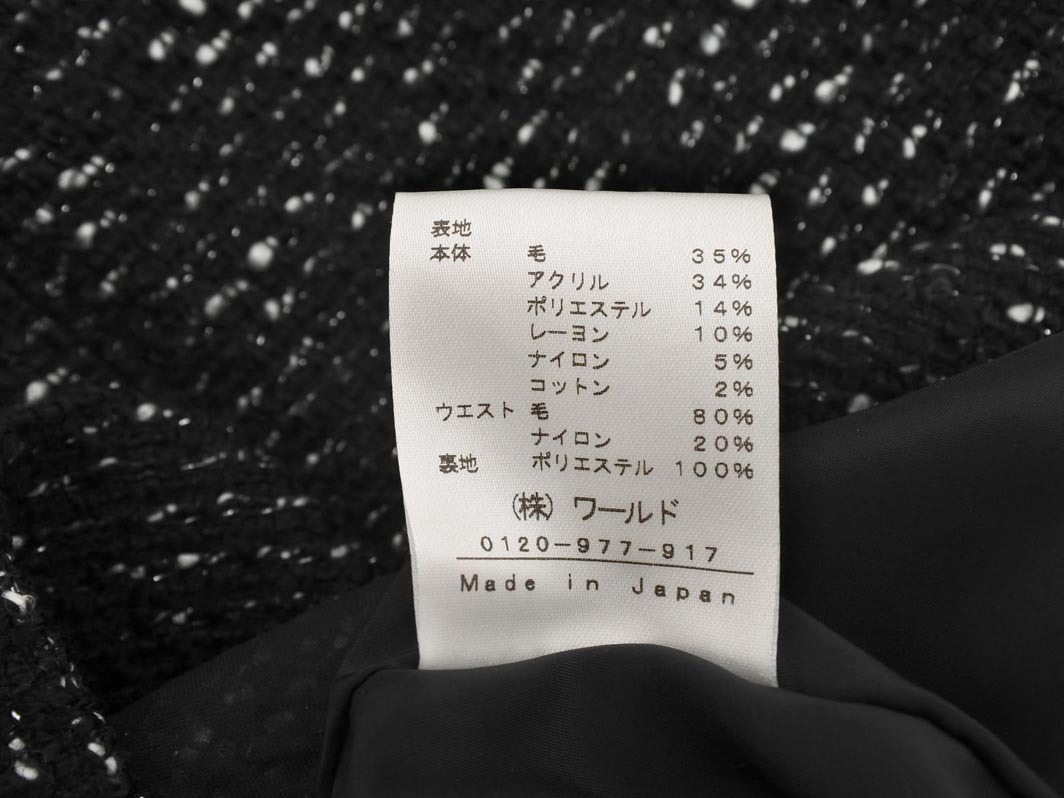 表地
本体 毛 35%
アクリル 34%
ポリエステル 14%
レーヨン 10%
ナイロン 5%
コットン 2%
ウエスト 毛 80%
ナイロン 20%
裏地 ポリエステル 100%
(株) ワールド
0120-977-917
Made in Japan